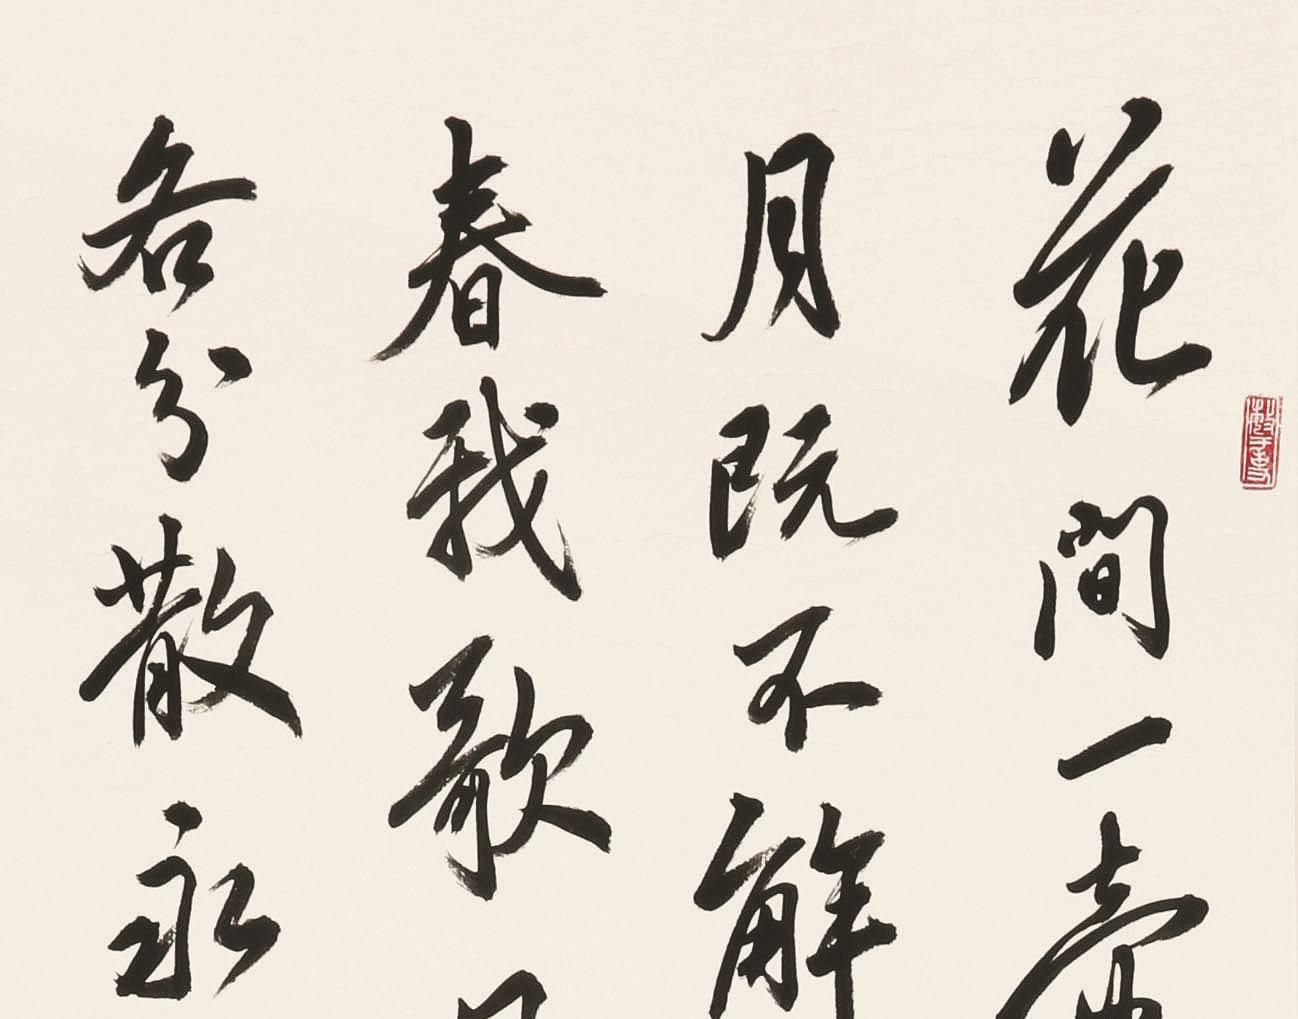 花間一壺
月既不解
春我歌月
各分散永